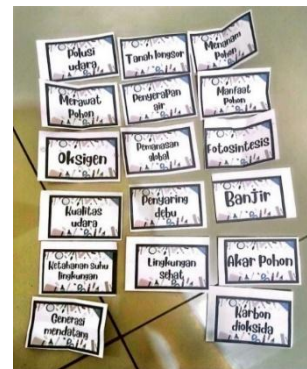 Polusi
udara
Tanah longsor
Menanam
Pohon
Merawat
Pohon
Penyerapan
air
Manfaat
Pohon
Oksigen
Pemanasan
global
Fotosintesis
Kualitas
udara
Penyaring
debu
Banjir
Ketahanan suhu
lingkungan
Lingkungan
sehat
Akar Pohon
Generasi
mendatang
Karbon
dioksida